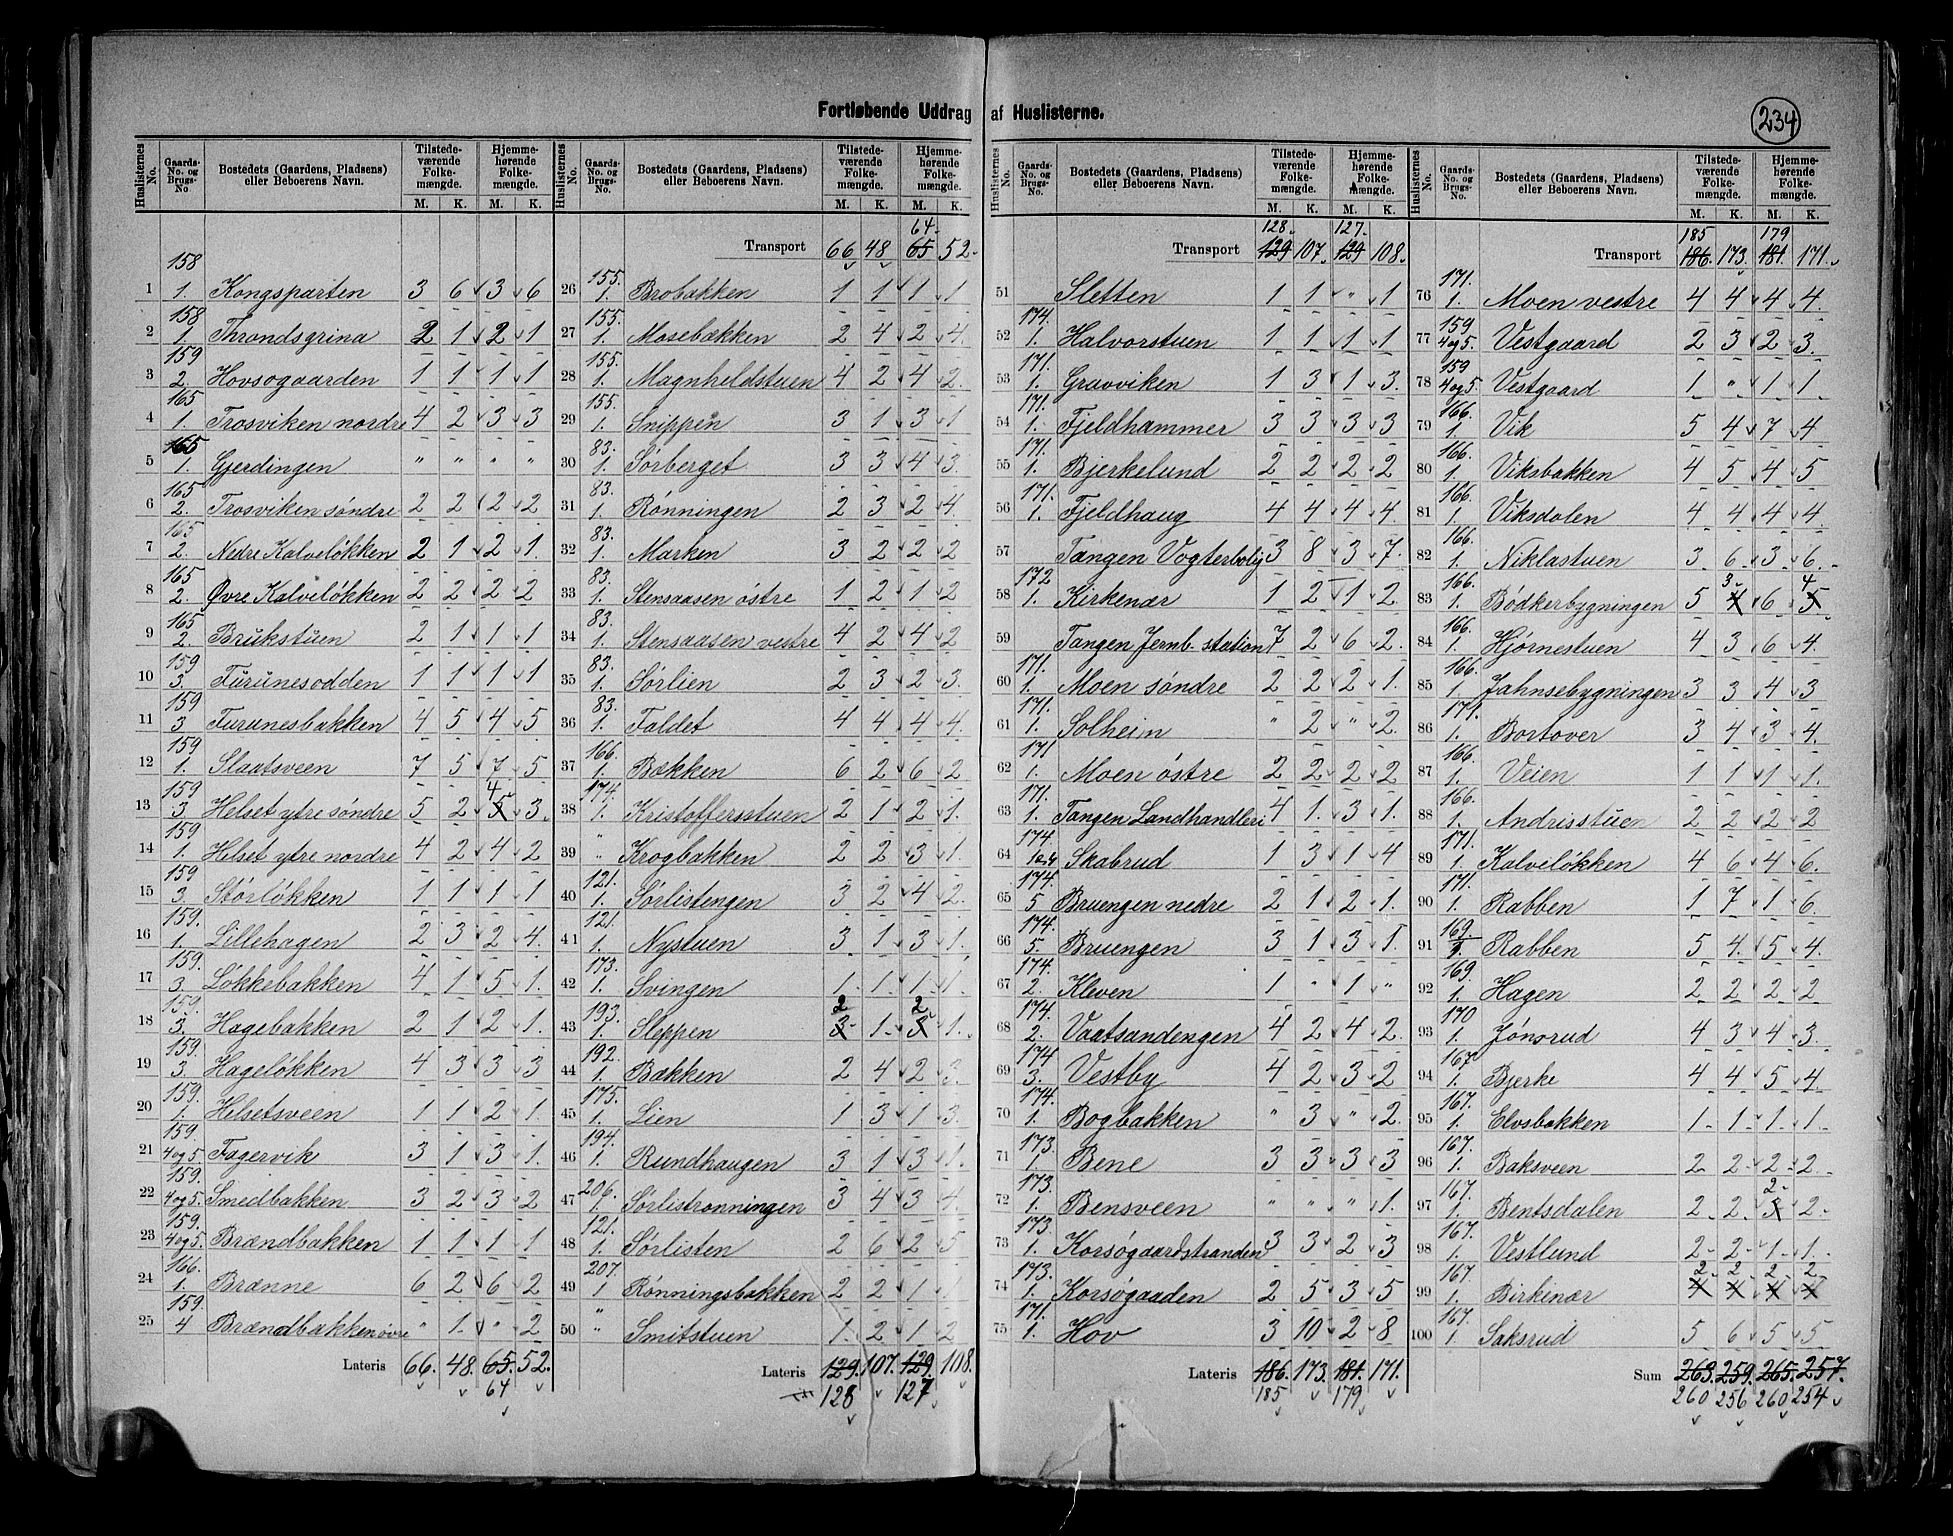 Fortløbende Uddrag af Huslisterne.
234
Huslisternes No. | Gaards-No. og Brugs-No. | Bostedets (Gaardens, Pladsens) eller Beboerens Navn. | Tilstedeværende Folkemængde. M. K. | Hjemmehørende Folkemængde. M. K.
1 158 1. Kongsparten 3 6 3 6
2 158 1. Throndsgrina 2 1 2 1
3 159 2. Hovsogaarden 1 1 1 1
4 165 1. Trosviken nordre 4 2 3 3
5 165 1. Gjerdingen " " " "
6 165 2. Trosviken søndre 2 2 2 2
7 165 2. Nedre Kalveløkken 2 1 2 1.
8 165 2. Øvre Kalveløkken 2 2 2 2
9 165 2. Brukstuen 2 1 1 1
10 159 3. Furunesodden 1 1 1 1
11 159 3 Furunesbakken 4 5 4 5
12 159 1. Slaatsveen 7 5 7 5
13 159 3 Helset ytre søndre 5 2 5 4 3.
14 159 1. Helset ytre nordre 4 2 4 2
15 159 3. Størløkken 1 1 1 1
16 159. 1. Lillehagen 2 3 2 4.
17 159. 3. Løkkebakken 4 1 5 1.
18 159. 3. Hagebakken 2 1 2 1.
19 159. 3. Hageløkken 4 3 3 3
20 159. 1. Helsetsveen 1 1 2 1.
21 159. 4og5. Fagervik 3 1 3 1.
22 159. 4og5. Smedbakken 3 2 3 2
23 159. 4og5. Brændbakken 1 1 1 1
24 166. 1. Brænne 6 2 6 2
25 159. 4 Brændbakken øvre " 1. " 2
Lateris 66. 48. 65. 52.
64
Transport 66 48 65 64 52
26 155. 1. Brobakken 1 1 1 1
27 155. 1. Mosebækken 2 4 2 4.
28 155. 1. Magnheldstuen 4 2 4 2.
29 155. 1. Snippen 3 1 3 1
30 83. 1. Sørberget 3 3 4 3.
31 83. 1. Rønningen 2 3 2 4.
32 83. 1. Marken 3 2 2 2
33 83. 1. Stensaasen østre 1 2 1 2
34 83. 1. Stensaasen vestre 4 2 4 2
35 83. 1. Sørlien 2 3 2 3.
36 83. 1. Faldet 4 4 4 4
37 166. 1. Bækken 6 2 6 2
38 174. 1. Kristoffersstuen 2 1 2 1.
39 " Krogbakken 2 2 3 1.
40 121. 1. Sørlistengen 3 2 4 2
41 121. 1. Nystuen 3 1 3 1.
42 173. 1. Svingen 1. 1. 1. 1.
43 193. 1. Sleppen 3 2 1. 3 2 1.
44 192. 1. Bakken 2 4 2 3.
45 173. 1. Lien 1 3 1 3.
46 194. 1. Rundhaugen 3 1 3 1.
47 206. 1. Sørlistrønningen 3 4 3 4
48 121. 1. Sørlisten 2 6 2 5
49 207. 1 Rønningsbakken 2 2 1 1
50 " Smitstuen 1. 2 1 2
Lateris 129. 107. 129. 108.
128 127
Transport 129 128. 107. 129 127. 108.
51 Sletten 1 1 " 1
52 174. 1. Halvorstuen 1 1 1 1
53 171. 1. Gravviken 1 3 1 3.
54 171. 1. Fjeldhammer 3 3 3 3
55 171. 1. Bjerkelund 2 2 2 2
56 171. 1. Fjeldhaug 4 4 4 4.
57 Tangen Vogterbolig 3 8 3 7.
58 172 1. Kirkenær 1 2 1 2.
59 Tangen Jernb. station 7 2 6 2.
60 171. 1. Moen søndre 2 2 2 1.
61 171. 1. Solheim " 2 " 2.
62 171 1. Moen østre 2 2 2 2
63 171. 1. Tangen Landhandleri 4 1. 3 1.
64 174. Skabrud 1 3 1 4
65 174. 5 Bruengen nedre 2 1 2 1.
66 174. 5. Bruengen 3 1 3 1.
67 174. 2. Kleven 1 " 1 "
68 174. 2. Vaatsandengen 4 2 4 2.
69 174 3. Vestby 4 2 3 2
70 174. 1. Bogbakken " 3 " 2.
71 173. 1. Bene 3 3 3 3
72 173. 1. Bensveen " " " 1.
73 173. 1. Korsøgaardstranden 3 3 2 3
74 173. 1. Korsøgaarden 2 5 3 5
75 171. 1. Hov 3 10 2 8
Lateris 186. 173. 181. 171.
185 179
Transport 186. 185 173. 181. 179 171.
76 171. 1. Moen vestre 4 4 4 4.
77 159 4og5. Vestgaard 2 3 2 3.
78 159 4og5. Vestgaard 1 " 1 1
79 166. 1. Vik 5 4 7 4
80 166. 1. Viksbakken 4 5 4 5
81 166. 1. Viksdalen 4 4 4 4.
82 166. 1. Niklastuen 3 6. 3 6.
83 166. 1. Bødkerbygningen 5 4 3 6 5 4
84 166. 1. Hjørnestuen 4 3 6 4.
85 166. 1. Jahnsebygningen 3 3 4 3
86 171. 1. Bortover 3 4 3 4.
87 166. 1. Veien 1 1 1 1.
88 166. 1. Andrisstuen 2 2 2 2
89 171. 1. Kalveløkken 4 6 4 6.
90 171. 1. Rabben 1 7 1 6.
91 169. Rabben 5 4. 5 4.
92 169. 1. Hagen 2 2 2 2
93 170 1. Jønsrud 4 3 4 3.
94 167. 1. Bjerke 4 4 5 4
95 167. 1. Elvsbakken 1. 1. 1. 1.
96 167. 1. Baksveen 2 2. 2. 2.
97 167. 1. Bentsdalen 2 2. 3 2. 2.
98 167. 1. Vestlund 2 2. 1. 1.
99 167. 1. Birkenær 2 2 2 2
100 167. 1. Saksrud 5 6 5 5
Sum 263. 259. 265. 257.
260 256 260 254